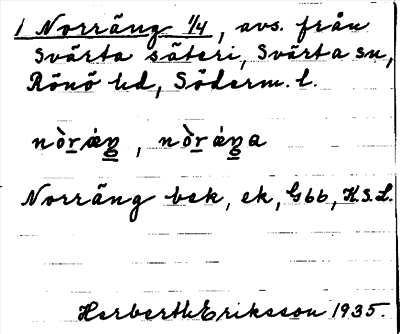 1 Norräng 1/4, avs. från
Svärta säteri, Svärta sn,
Rönö hd, Söderm. l.
nòr̲áŋ̲, nòr̲áŋ̲a
Norräng bek, ek, Gbb, K.S.L.
Herberth Eriksson 1935.